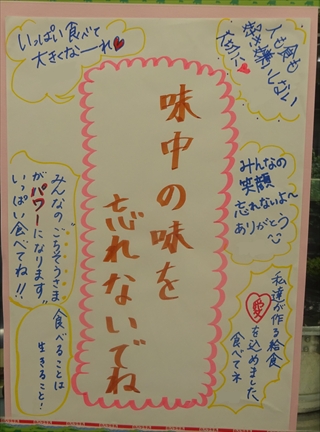 いっぱい食べて
大きくなーれ
人も食も
好き嫌いしない
味中の味を
忘れないでね
みんなの
笑顔
忘れないよ～
ありがとう
みんなの"ごちそうさま"
がパワーになります。
いっぱい食べてね!!
食べることは
生きること!
私達が作る給食
愛を込めました
食べてネ